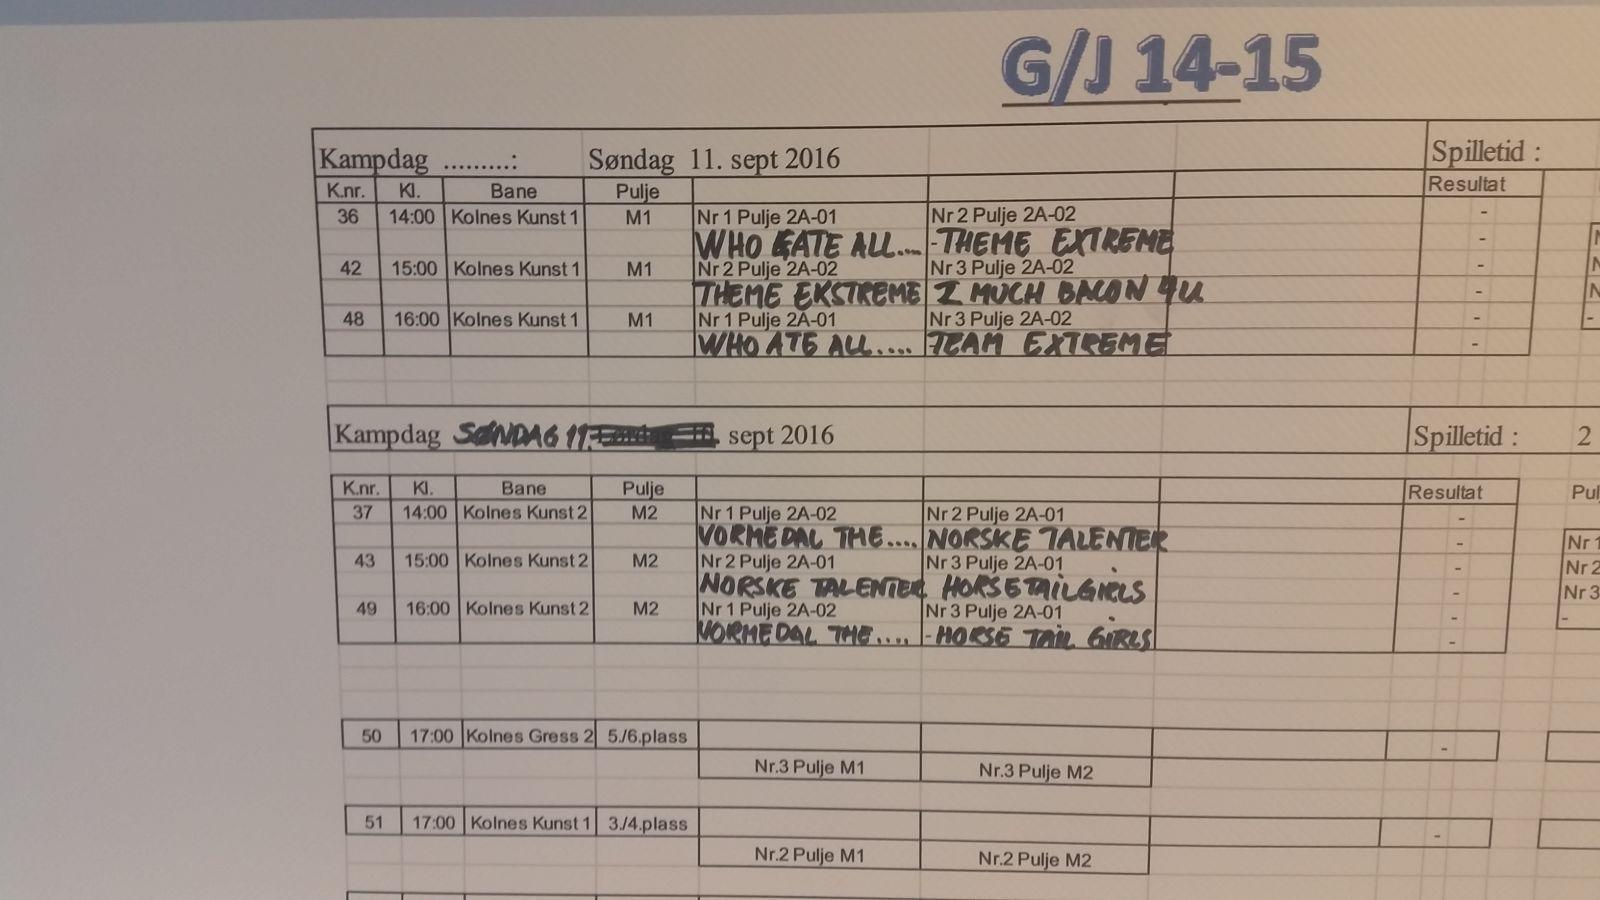 G/J 14-15
Kampdag .........: Søndag 11. sept 2016 Spilletid :
K.nr. Kl. Bane Pulje Resultat
36 14:00 Kolnes Kunst 1 M1 Nr 1 Pulje 2A-01 Nr 2 Pulje 2A-02 -
WHO ATE ALL.... - THEME EXTREME -
42 15:00 Kolnes Kunst 1 M1 Nr 2 Pulje 2A-02 Nr 3 Pulje 2A-02 -
THEME EKSTREME I MUCH BACON 4U -
48 16:00 Kolnes Kunst 1 M1 Nr 1 Pulje 2A-01 Nr 3 Pulje 2A-02 -
WHO ATE ALL.... TEAM EXTREME -
Kampdag SØNDAG 11. sept 2016 Spilletid : 2
K.nr. Kl. Bane Pulje Resultat Pul
37 14:00 Kolnes Kunst 2 M2 Nr 1 Pulje 2A-02 Nr 2 Pulje 2A-01 -
VORMEDAL THE.... NORSKE TALENTER - Nr 1
43 15:00 Kolnes Kunst 2 M2 Nr 2 Pulje 2A-01 Nr 3 Pulje 2A-01 - Nr 2
NORSKE TALENTER HORSETAILGIRLS - Nr 3
49 16:00 Kolnes Kunst 2 M2 Nr 1 Pulje 2A-02 Nr 3 Pulje 2A-01 - -
VORMEDAL THE.... - HORSE TAIL GIRLS -
50 17:00 Kolnes Gress 2 5./6.plass -
Nr.3 Pulje M1 Nr.3 Pulje M2
51 17:00 Kolnes Kunst 1 3./4.plass -
Nr.2 Pulje M1 Nr.2 Pulje M2